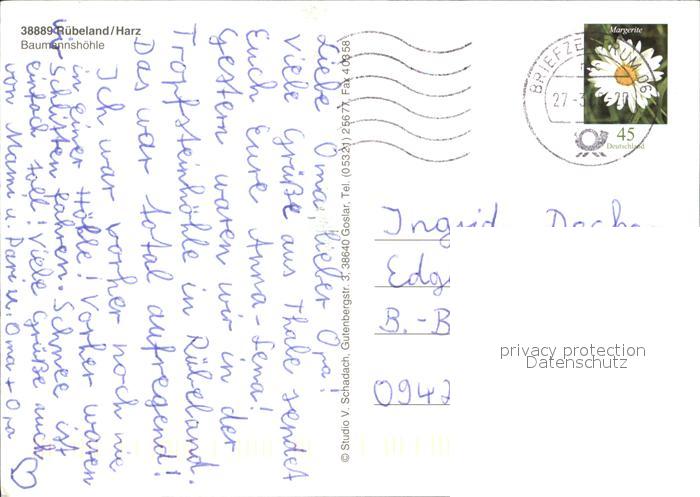 38889 Rübeland/Harz
Baumannshöhle
Liebe Oma, lieber Opa!
Viele Grüße aus Thale sendet
Euch Eure Anna-Lena!
Gestern waren wir in der
Tropfsteinhöhle in Rübeland.
Das war total aufregend!
Ich war vorher noch nie
in einer Höhle! Vorher waren
wir Schlitten fahren. Schnee ist
einfach toll! Viele Grüße auch
von Mami u. Papi u. Oma + Opa
© Studio V. Schadach, Gutenbergstr. 3, 38640 Goslar, Tel. (05321) 25677, Fax 40358
BRIEFZENTRUM 06
27.-3.
Margerite
45
Deutschland
Ingrid
Edg
B.-B
0942
privacy protection
Datenschutz